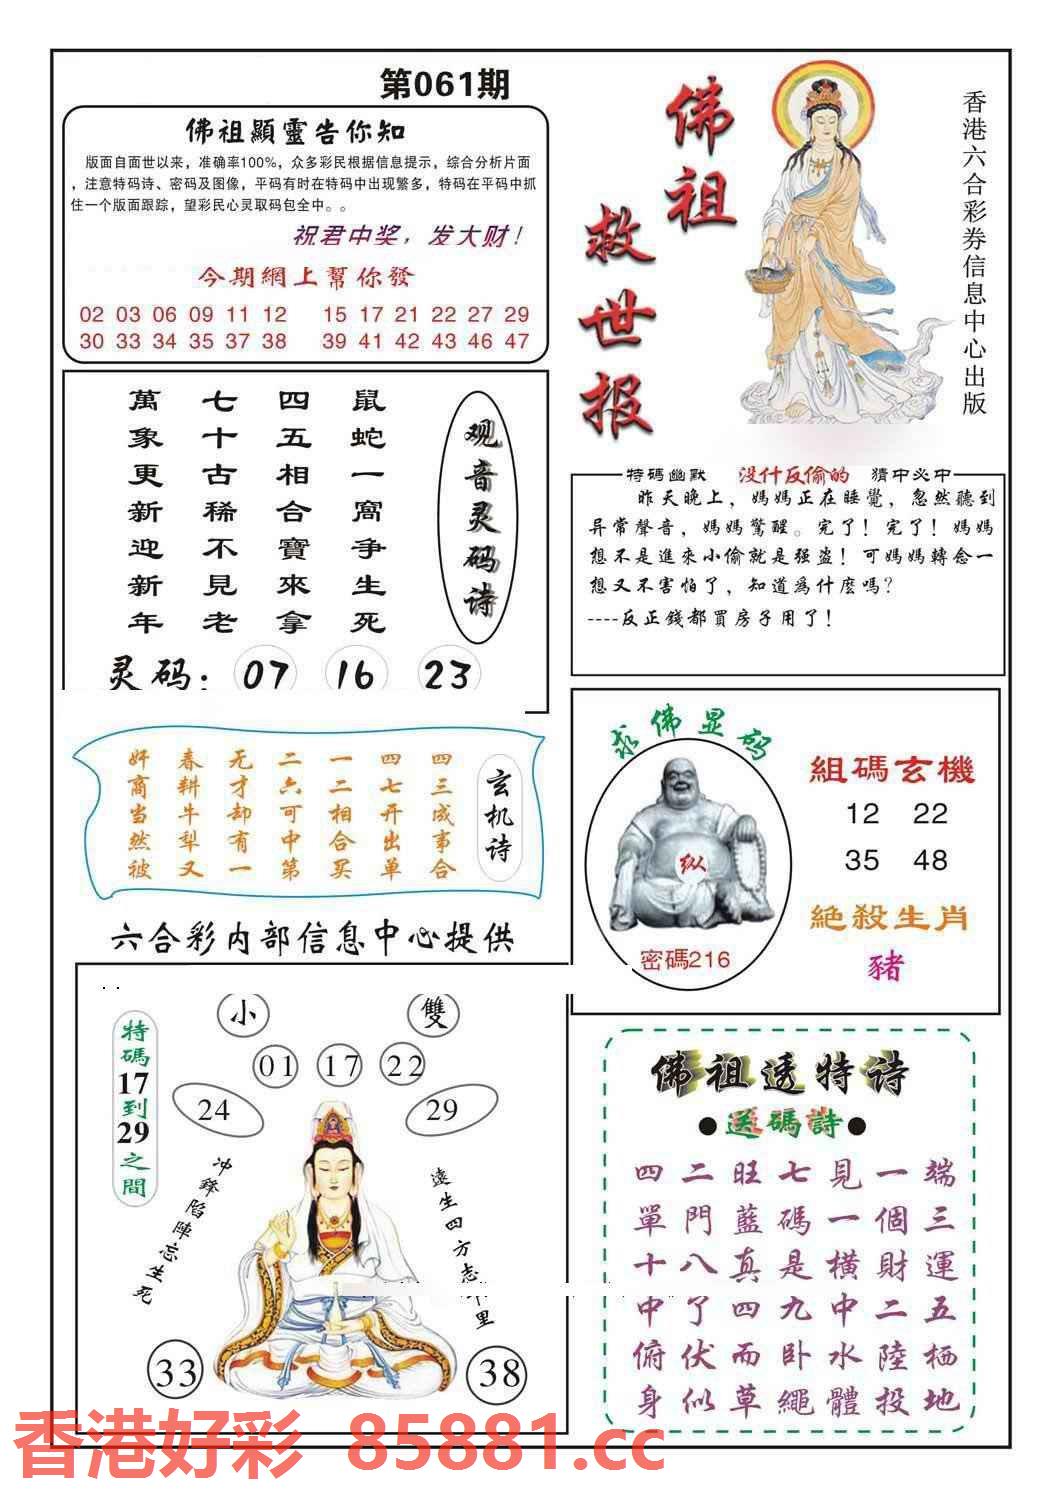 第061期
佛祖顯靈告你知
版面自面世以来，准确率100%，众多彩民根据信息提示，综合分析片面
，注意特码诗、密码及图像，平码有时在特码中出现繁多，特码在平码中抓
住一个版面跟踪，望彩民心灵取码包全中。。
祝君中奖，发大财！
今期網上幫你發
02 03 06 09 11 12 15 17 21 22 27 29
30 33 34 35 37 38 39 41 42 43 46 47
佛祖
救世报
香港六合彩券信息中心出版
观音灵码诗
鼠蛇一窩争生死
四五相合寶來拿
七十古稀不見老
萬象更新迎新年
灵码： 07 16 23
特碼幽默 没什反偷的 猜中必中
昨天晚上，媽媽正在睡覺，忽然聽到
异常聲音，媽媽驚醒。完了！完了！媽媽
想不是進來小偷就是强盗！可媽媽轉念一
想又不害怕了，知道爲什麽嗎？
----反正錢都買房子用了！
玄机诗
四三成事合
四七开出单
一二相合买
二六可中第
无才却有一
春耕牛犁又
奸商当然彼
六合彩内部信息中心提供
求佛显码
纵
密碼216
組碼玄機
12 22
35 48
絕殺生肖
豬
特碼17到29之間
小 雙
01 17 22
24 29
冲鋒陷陣忘生死
遠生四方志千里
33 38
佛祖透特诗
●送碼詩●
端三運五栖地
一個財二陸投
見一横中水體
七碼是九卧繩
旺藍真四而草
二門八了伏似
四單十中俯身
香港好彩 85881.cc